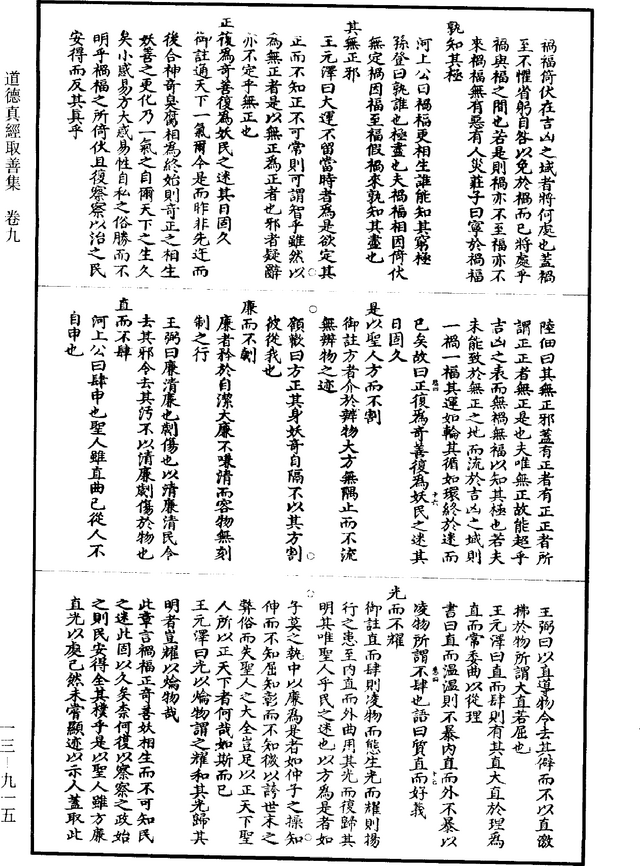 禍福倚伏在吉凶之域者將何處也蓋禍
至不懼省躬自咎以免於禍而已將處乎
禍與福之間也若是則禍亦不至福亦不
來禍福無有惡有人災莊子曰寧於禍福
孰知其極
河上公曰禍福更相生誰能知其窮極
孫登曰孰誰也極盡也夫禍福相因倚伏
無定禍因福至福假禍來孰知其盡也
其無正邪
王元澤曰大運不留當時者為是欲定其
正而不知正不可常則可謂智乎雖然以
為無正者是以無正為正者也邪者疑辭
亦不定乎無正也
正復為奇善復為妖民之迷其日固久
御註通天下一氣爾今是而昨非先迕而
後合神奇臭腐相為終始則奇正之相生
妖善之更化乃一氣之自爾天下之生久
矣小惑易方大惑易性自私之俗勝而不
明乎禍福之所倚伏且復察察以治之民
安得而反其真乎
陸佃曰其無正邪蓋有正者有正正者所
謂正正者無正是也夫唯無正故能超乎
吉凶之表而無禍無福以知其極也若夫
未能致於無正之地而流於吉凶之域則
一禍一福其運如輪其循如環終於迷而
已矣故曰正復為奇善復為妖民之迷其
日固久
是以聖人方而不割
御註方者介於辨物大方無隅止而不流
無辨物之迹
顧歡曰方正其身妖奇自隔不以其方割
彼從我也
廉而不劌
廉者矜於自潔大廉不嗛清而容物無刻
制之行
王弼曰廉清廉也劌傷也以清廉清民令
去其邪令去其污不以清廉劌傷於物也
直而不肆
河上公曰肆申也聖人雖直曲己從人不
自申也
王弼曰以直導物令去其僻而不以直激
拂於物所謂大直若屈也
王元澤曰直而肆則有其直大直於理為
直而常委曲以從理
書曰直而溫溫則不暴內直而外不暴以
凌物所謂不肆也語曰質直而好義
光而不耀
御註直而肆則凌物而態生光而耀則揚
行之患至內直而外曲用其光而復歸其
明其唯聖人乎民之迷也以方為是者如
子莫之執中以廉為是者如仲子之操知
伸而不知屈知彰而不知微以誇世末之
弊俗而失聖人之大全豈足以正天下聖
人所以正天下者何哉如斯而已
王元澤曰光以爚物謂之耀和其光歸其
明者豈耀以爚物哉
此章言禍福正奇善妖相生而不可知民
之迷此固以久矣柰何復以察察之政始
之則民安得全其樸乎是以聖人雖方廉
直光以處已然未嘗顯迹以示人蓋取此
道德真經取善集 卷九
一三—九一五